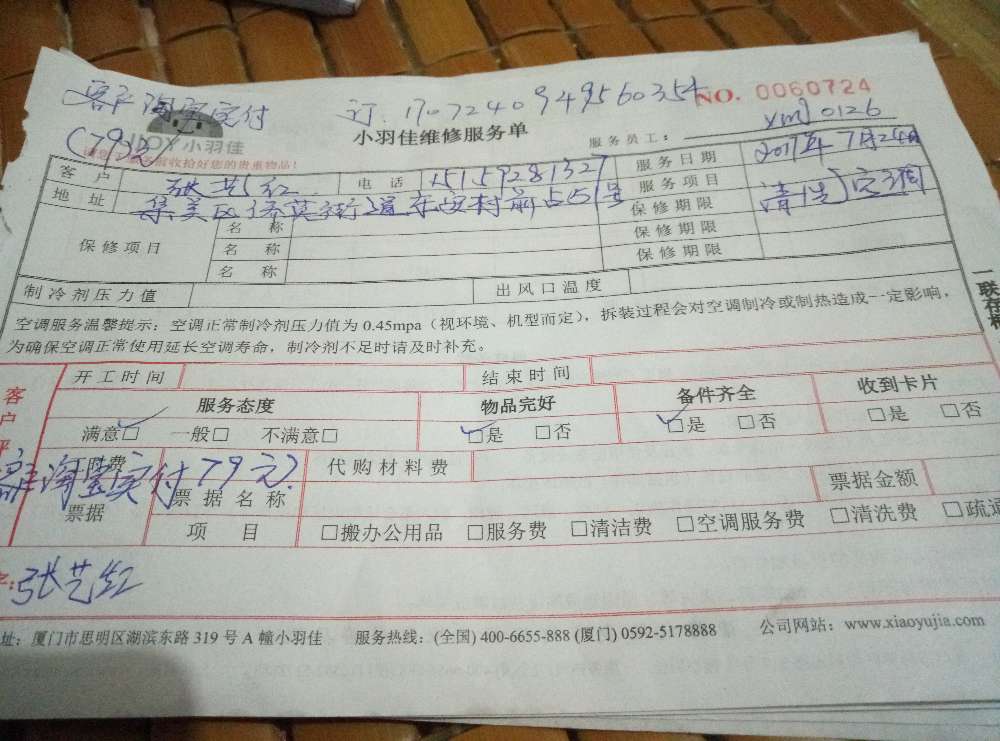 客户淘宝实付 订 170724094956035 NO. 0060724
(79元) JDOY 小羽佳 小羽佳维修服务单 服务员工： XMJ0126
收拾好您的贵重物品！
客 户 张艺红 电 话 15159281327 服务日期 2017年7月24日
地 址 集美区侨英街道东安村前占51号 服务项目 清洗空调
保修期限
保修项目 名 称 保修期限
名 称 保修期限
名 称
制冷剂压力值 出风口温度
一联存根
空调服务温馨提示：空调正常制冷剂压力值为 0.45mpa（视环境、机型而定），拆装过程会对空调制冷或制热造成一定影响，
为确保空调正常使用延长空调寿命，制冷剂不足时请及时补充。
客户评
开工时间 结束时间
服务态度 物品完好 备件齐全 收到卡片
满意□ 一般□ 不满意□ □是 □否 □是 □否 □是 □否
客户淘宝实付79元 代购材料费
票据 票据名称 票据金额
项 目 □搬办公用品 □服务费 □清洁费 □空调服务费 □清洗费 □疏通
张艺红
址：厦门市思明区湖滨东路 319 号 A 幢小羽佳 服务热线：(全国) 400-6655-888 (厦门) 0592-5178888 公司网站：www.xiaoyujia.com